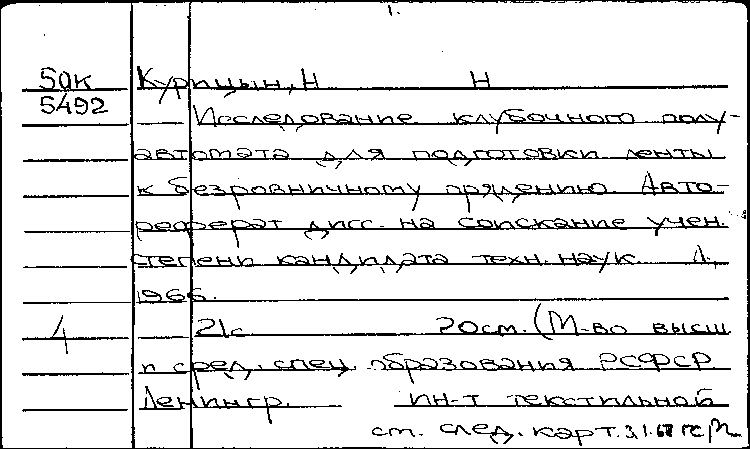 1.
50к Курицын, Н Н
5492 Исследование клубочного полу-
автомата для подготовки ленты
к безровничному прядению. Авто-
реферат дисс. на соискание учен.
степени кандидата техн. наук. Л.,
1966.
4 21с 20см. (М-во высш
и сред. спец. образования РСФСР
Ленингр. ин-т текстильной
см. след. карт. 3.1.67